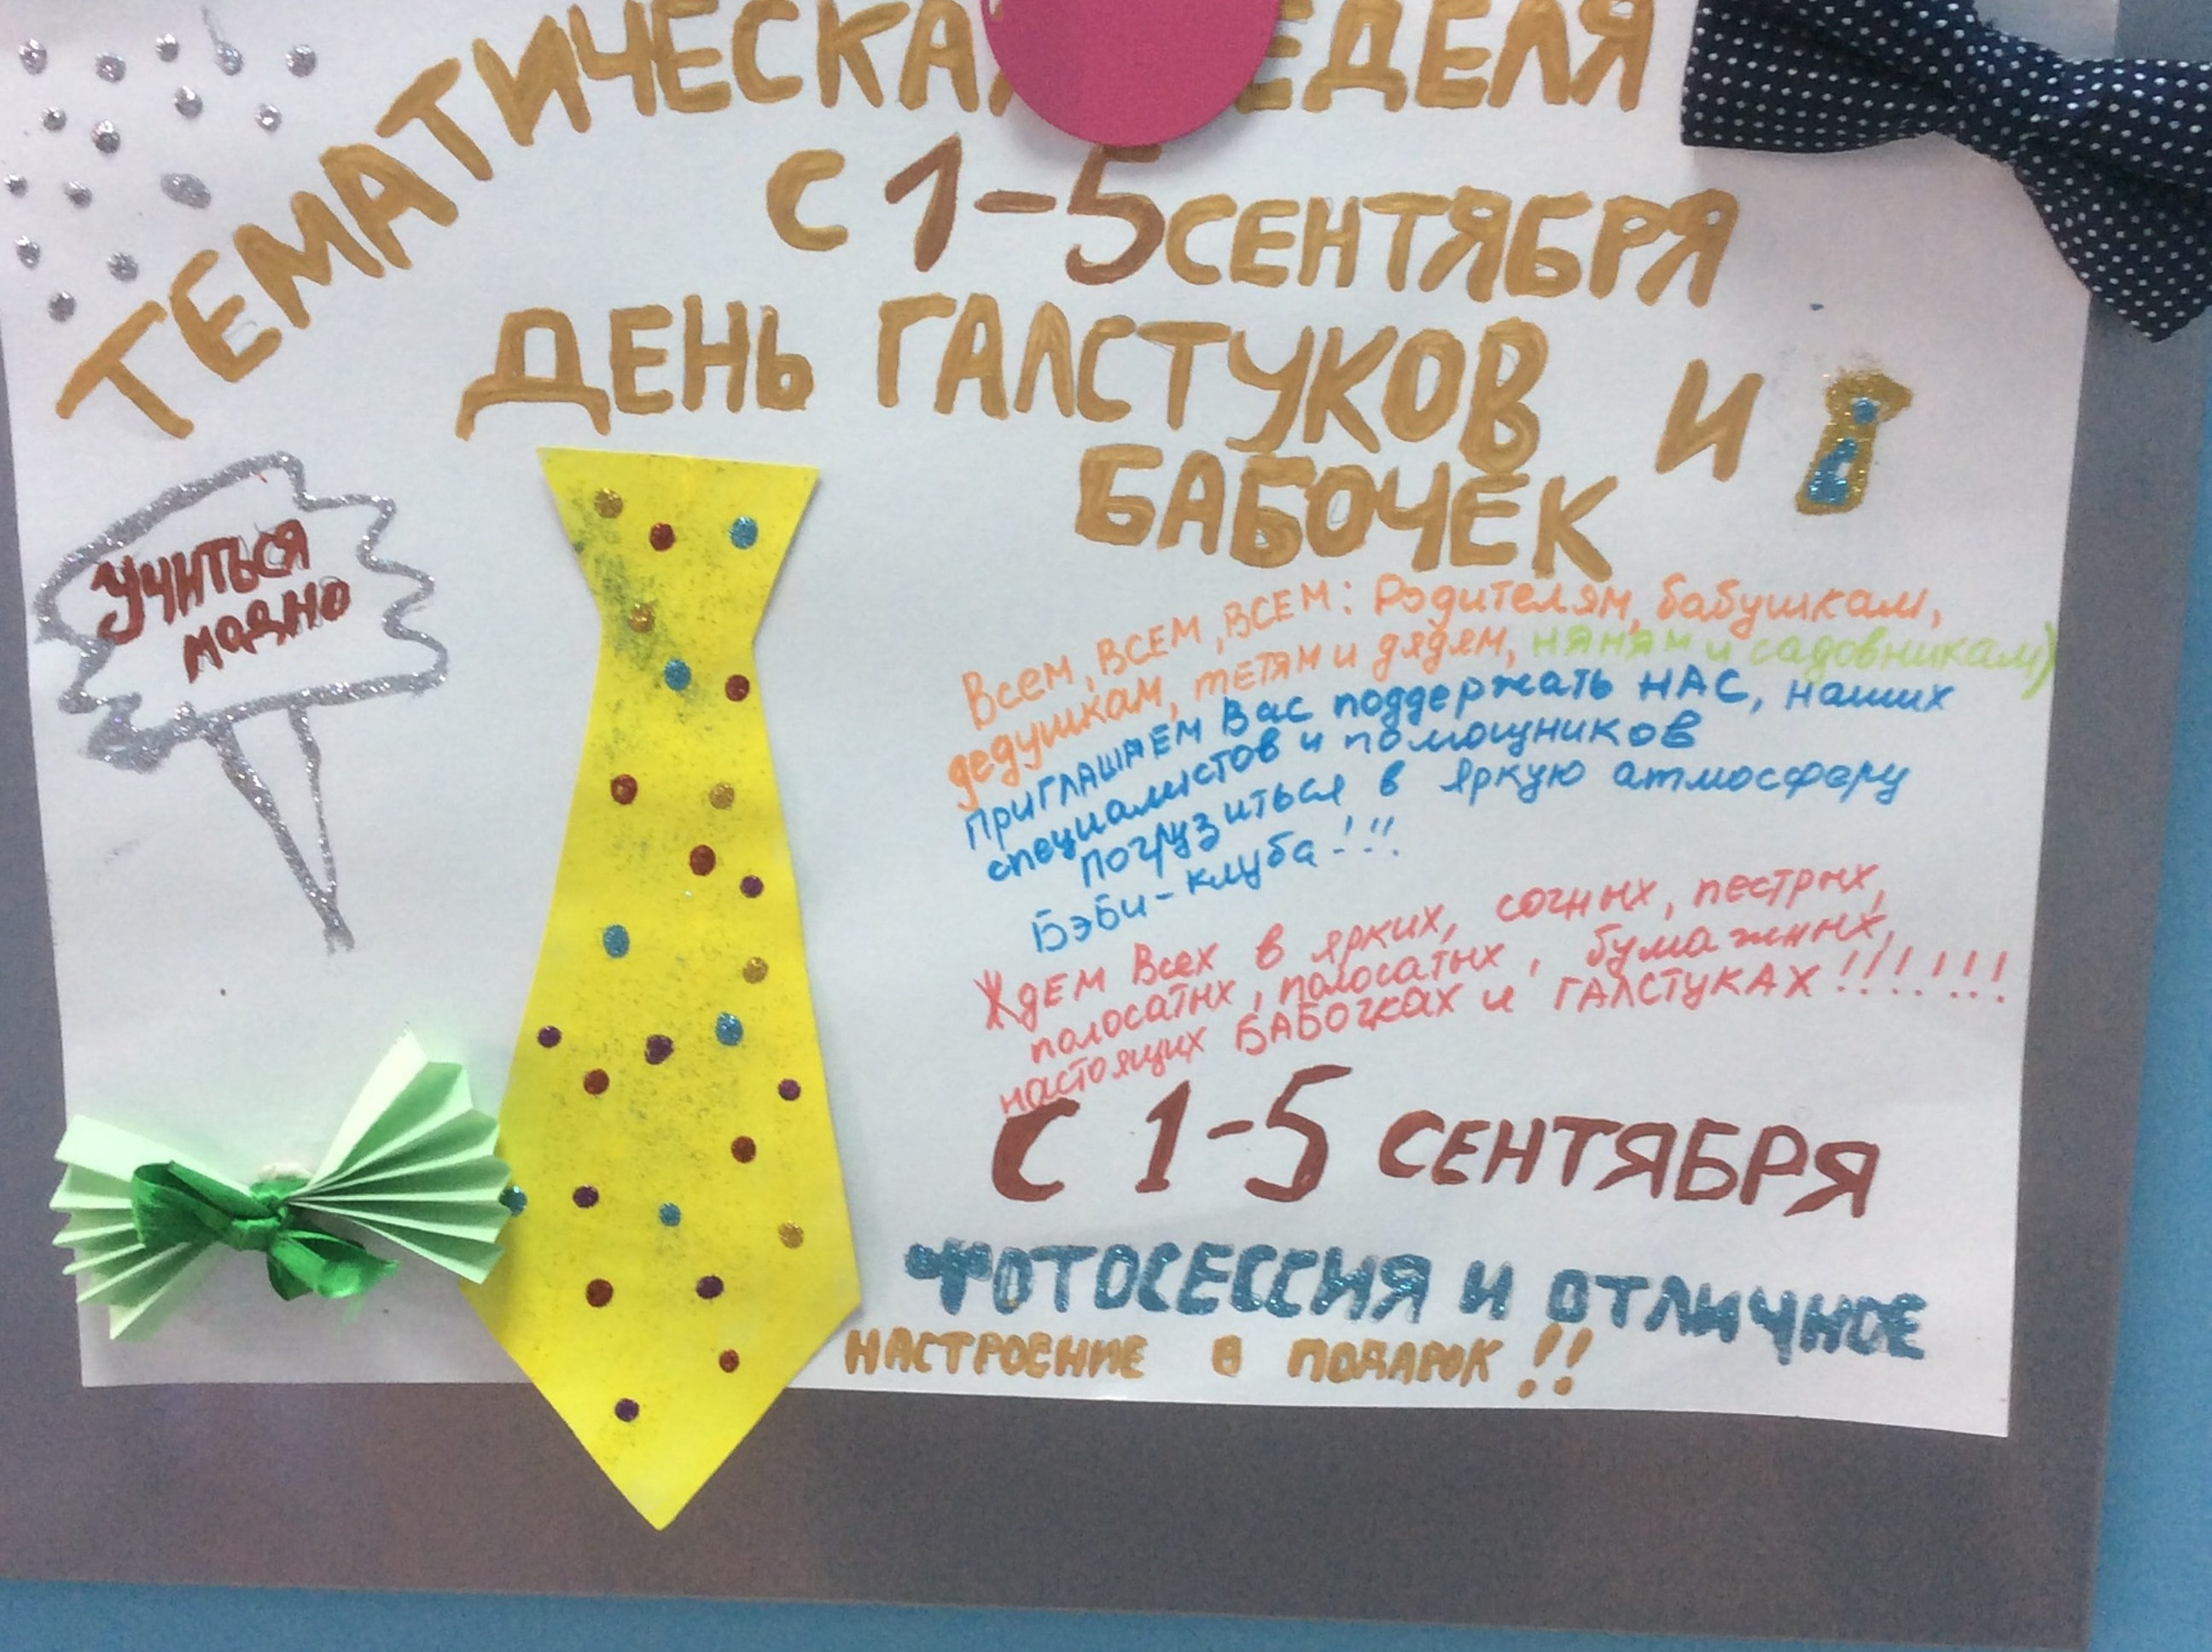 ТЕМАТИЧЕСКАЯ НЕДЕЛЯ
С 1-5 СЕНТЯБРЯ
ДЕНЬ ГАЛСТУКОВ И
БАБОЧЕК
УЧИТЬСЯ
МОДНО
Всем, ВСЕМ, ВСЕМ: Родителям, бабушкам,
дедушкам, тетям и дядям, няням и садовникам)
ПРИГЛАШАЕМ Вас поддержать НАС, наших
специалистов и помощников
погрузиться в яркую атмосферу
Бэби-клуба!!!
Ждем Всех в ярких, сочных, пестрых,
полосатых, полосатых, бумажных,
настоящих БАБочках и ГАЛСТУКАХ!!!!!!!
С 1-5 СЕНТЯБРЯ
ФОТОСЕССИЯ И ОТЛИЧНОЕ
НАСТРОЕНИЕ В ПОДАРОК!!